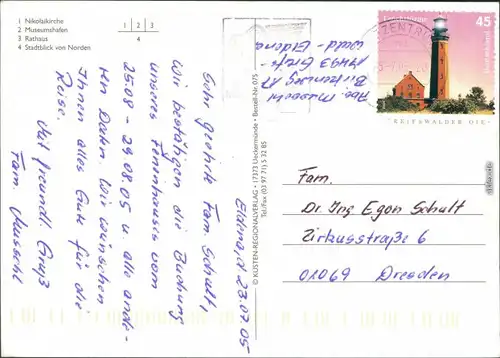 1 Nikolaikirche
2 Museumshafen
3 Rathaus
4 Stadtblick von Norden
1 2 3
4
Eldena, d. 23.07.05
Sehr geehrte Fam Schult,
Wir bestätigen die Buchung
unseres Ferienhauses vom
25.08 - 29.08.05 u alle ande-
ren Daten. Wir wünschen
Ihnen alles Gute für die
Reise.
Mit freundl. Gruß
Fam.
© KÜSTEN-REGIONALVERLAG • 17373 Ueckermünde • Bestell-Nr. 075
Tel./Fax (03 97 71) 5 32 85
Abs.
Birkenweg 17
17493 Greifs-
wald - Eldena
ZENTRUM
Leuchttürme
45
Deutschland
GREIFSWALDER OIE
Fam.
Dr. Ing Egon Schult
Zirkusstraße 6
01069 Dresden